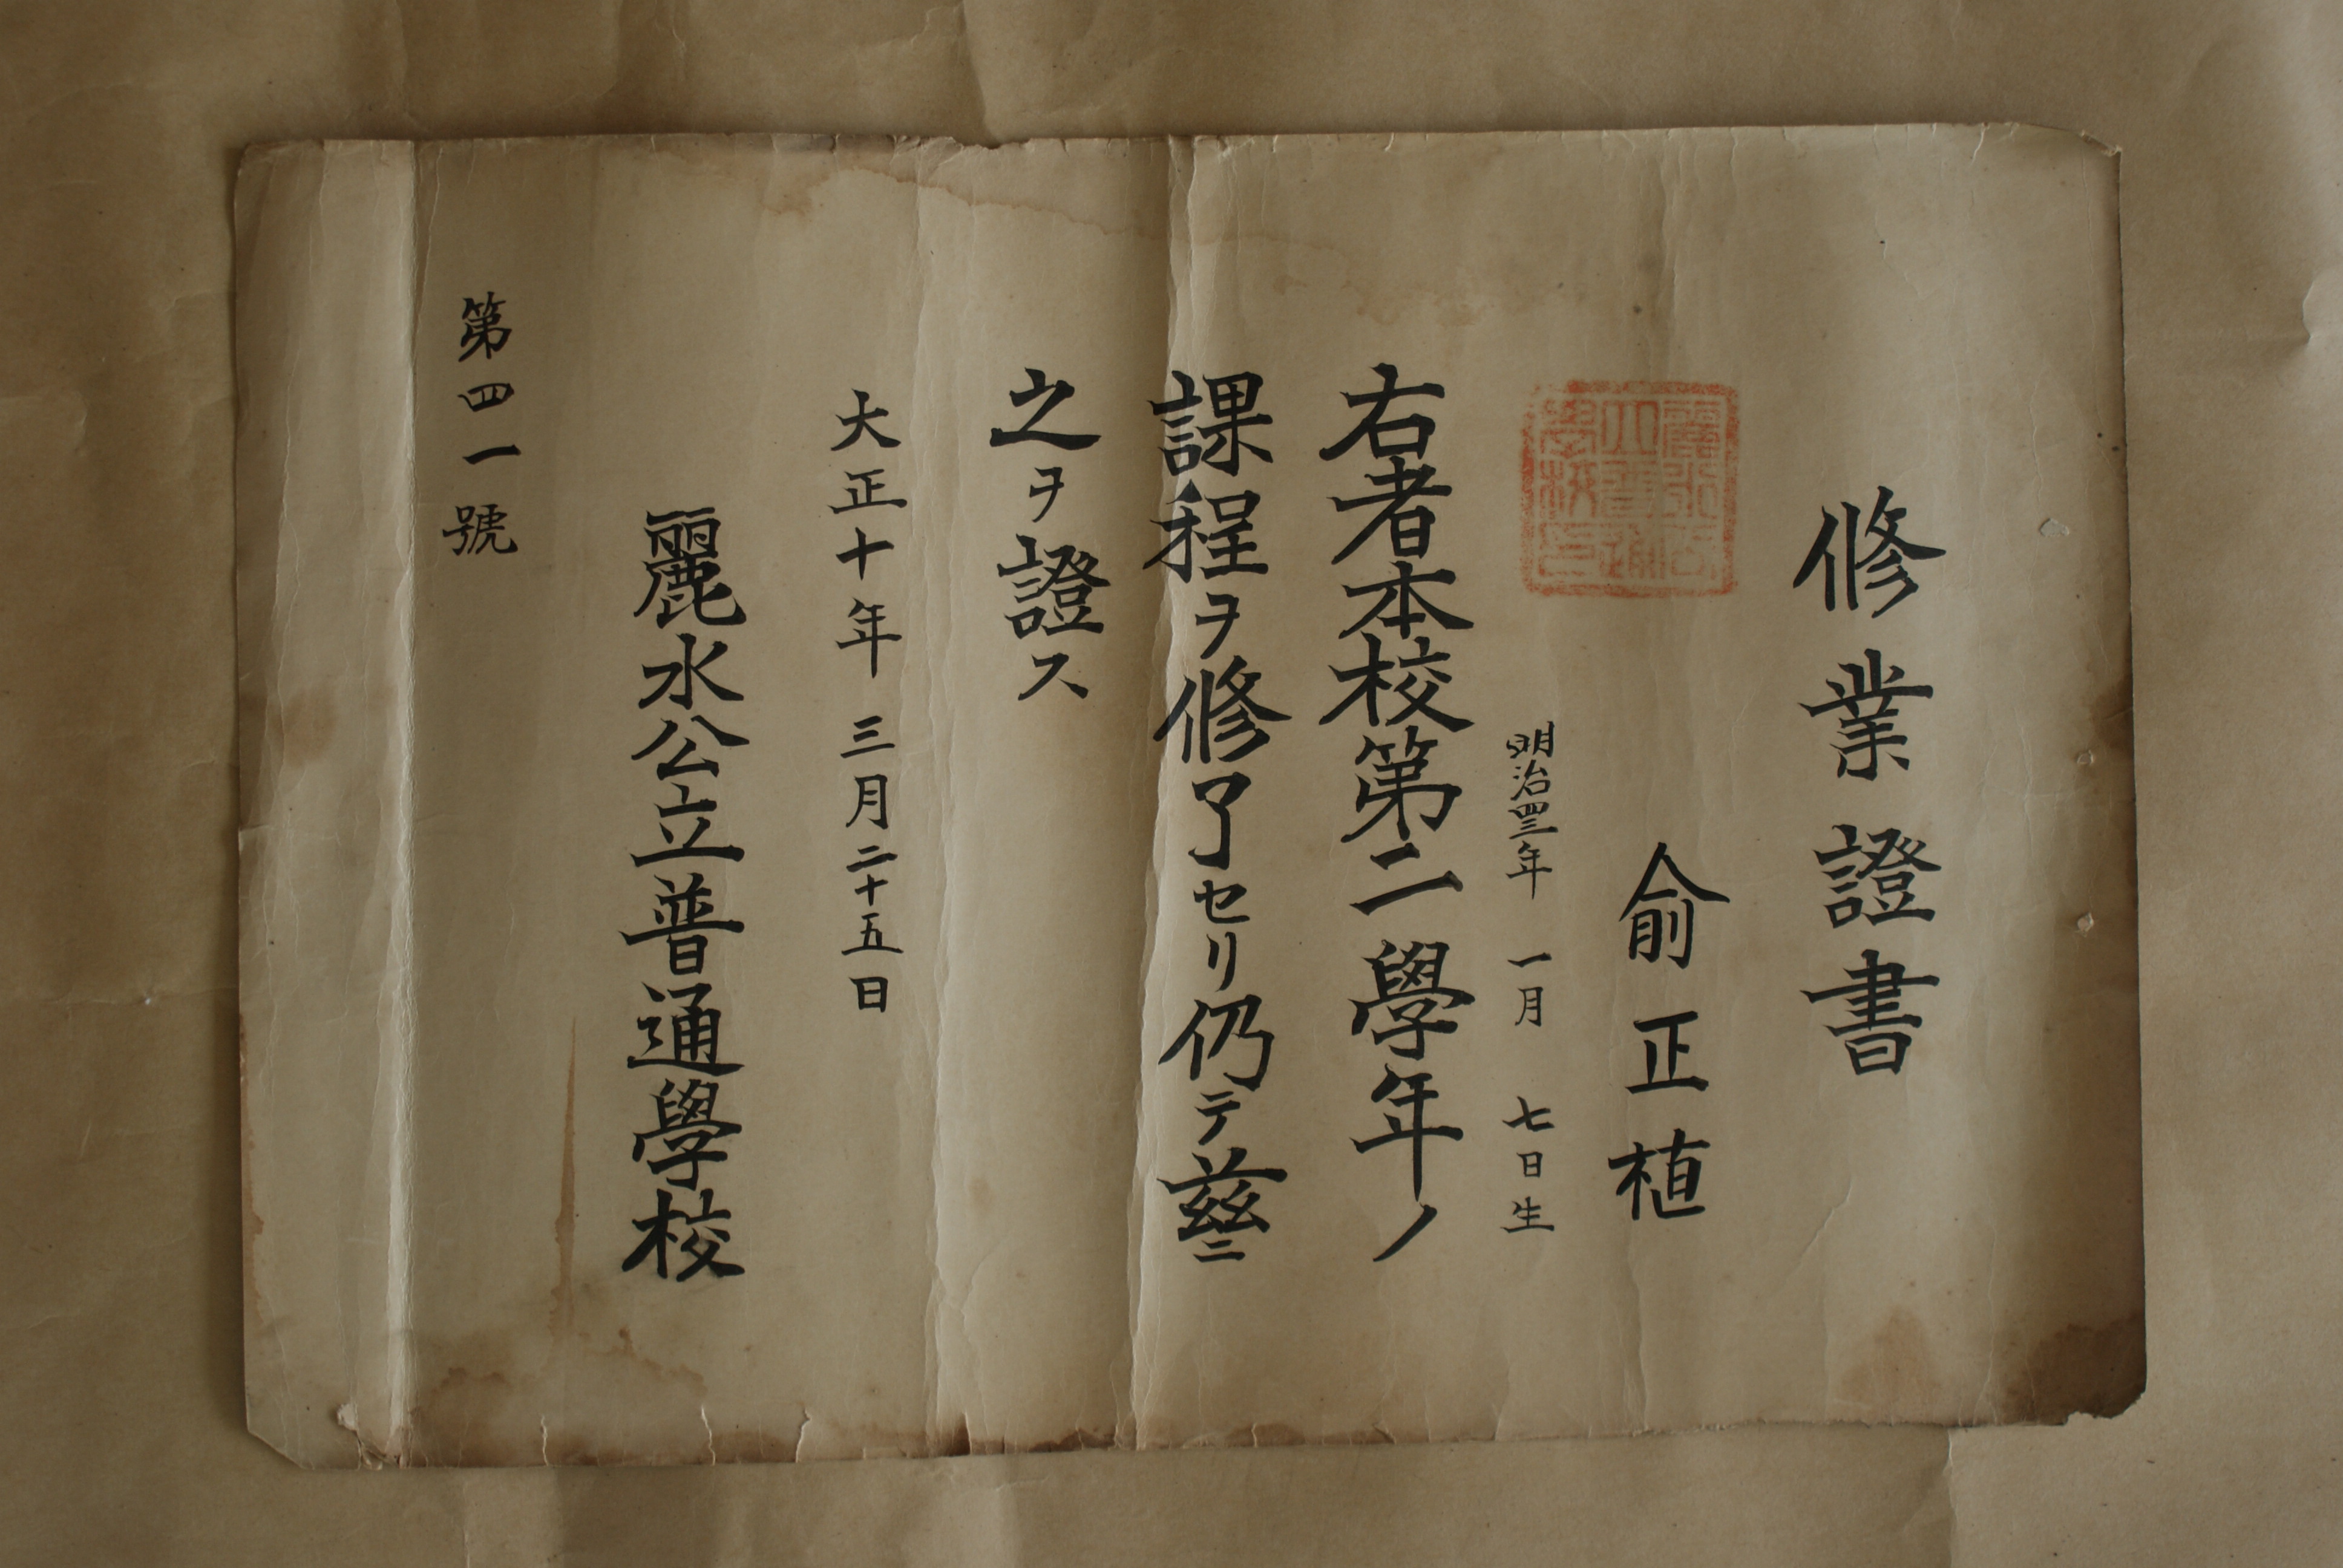 修業證書
俞正植
明治四三年 一月 七日生
右者本校第二學年ノ
課程ヲ修了セリ仍テ茲ニ
之ヲ證ス
大正十年 三月二十五日
麗水公立普通學校
第四一號
麗水公
立普通
學校印